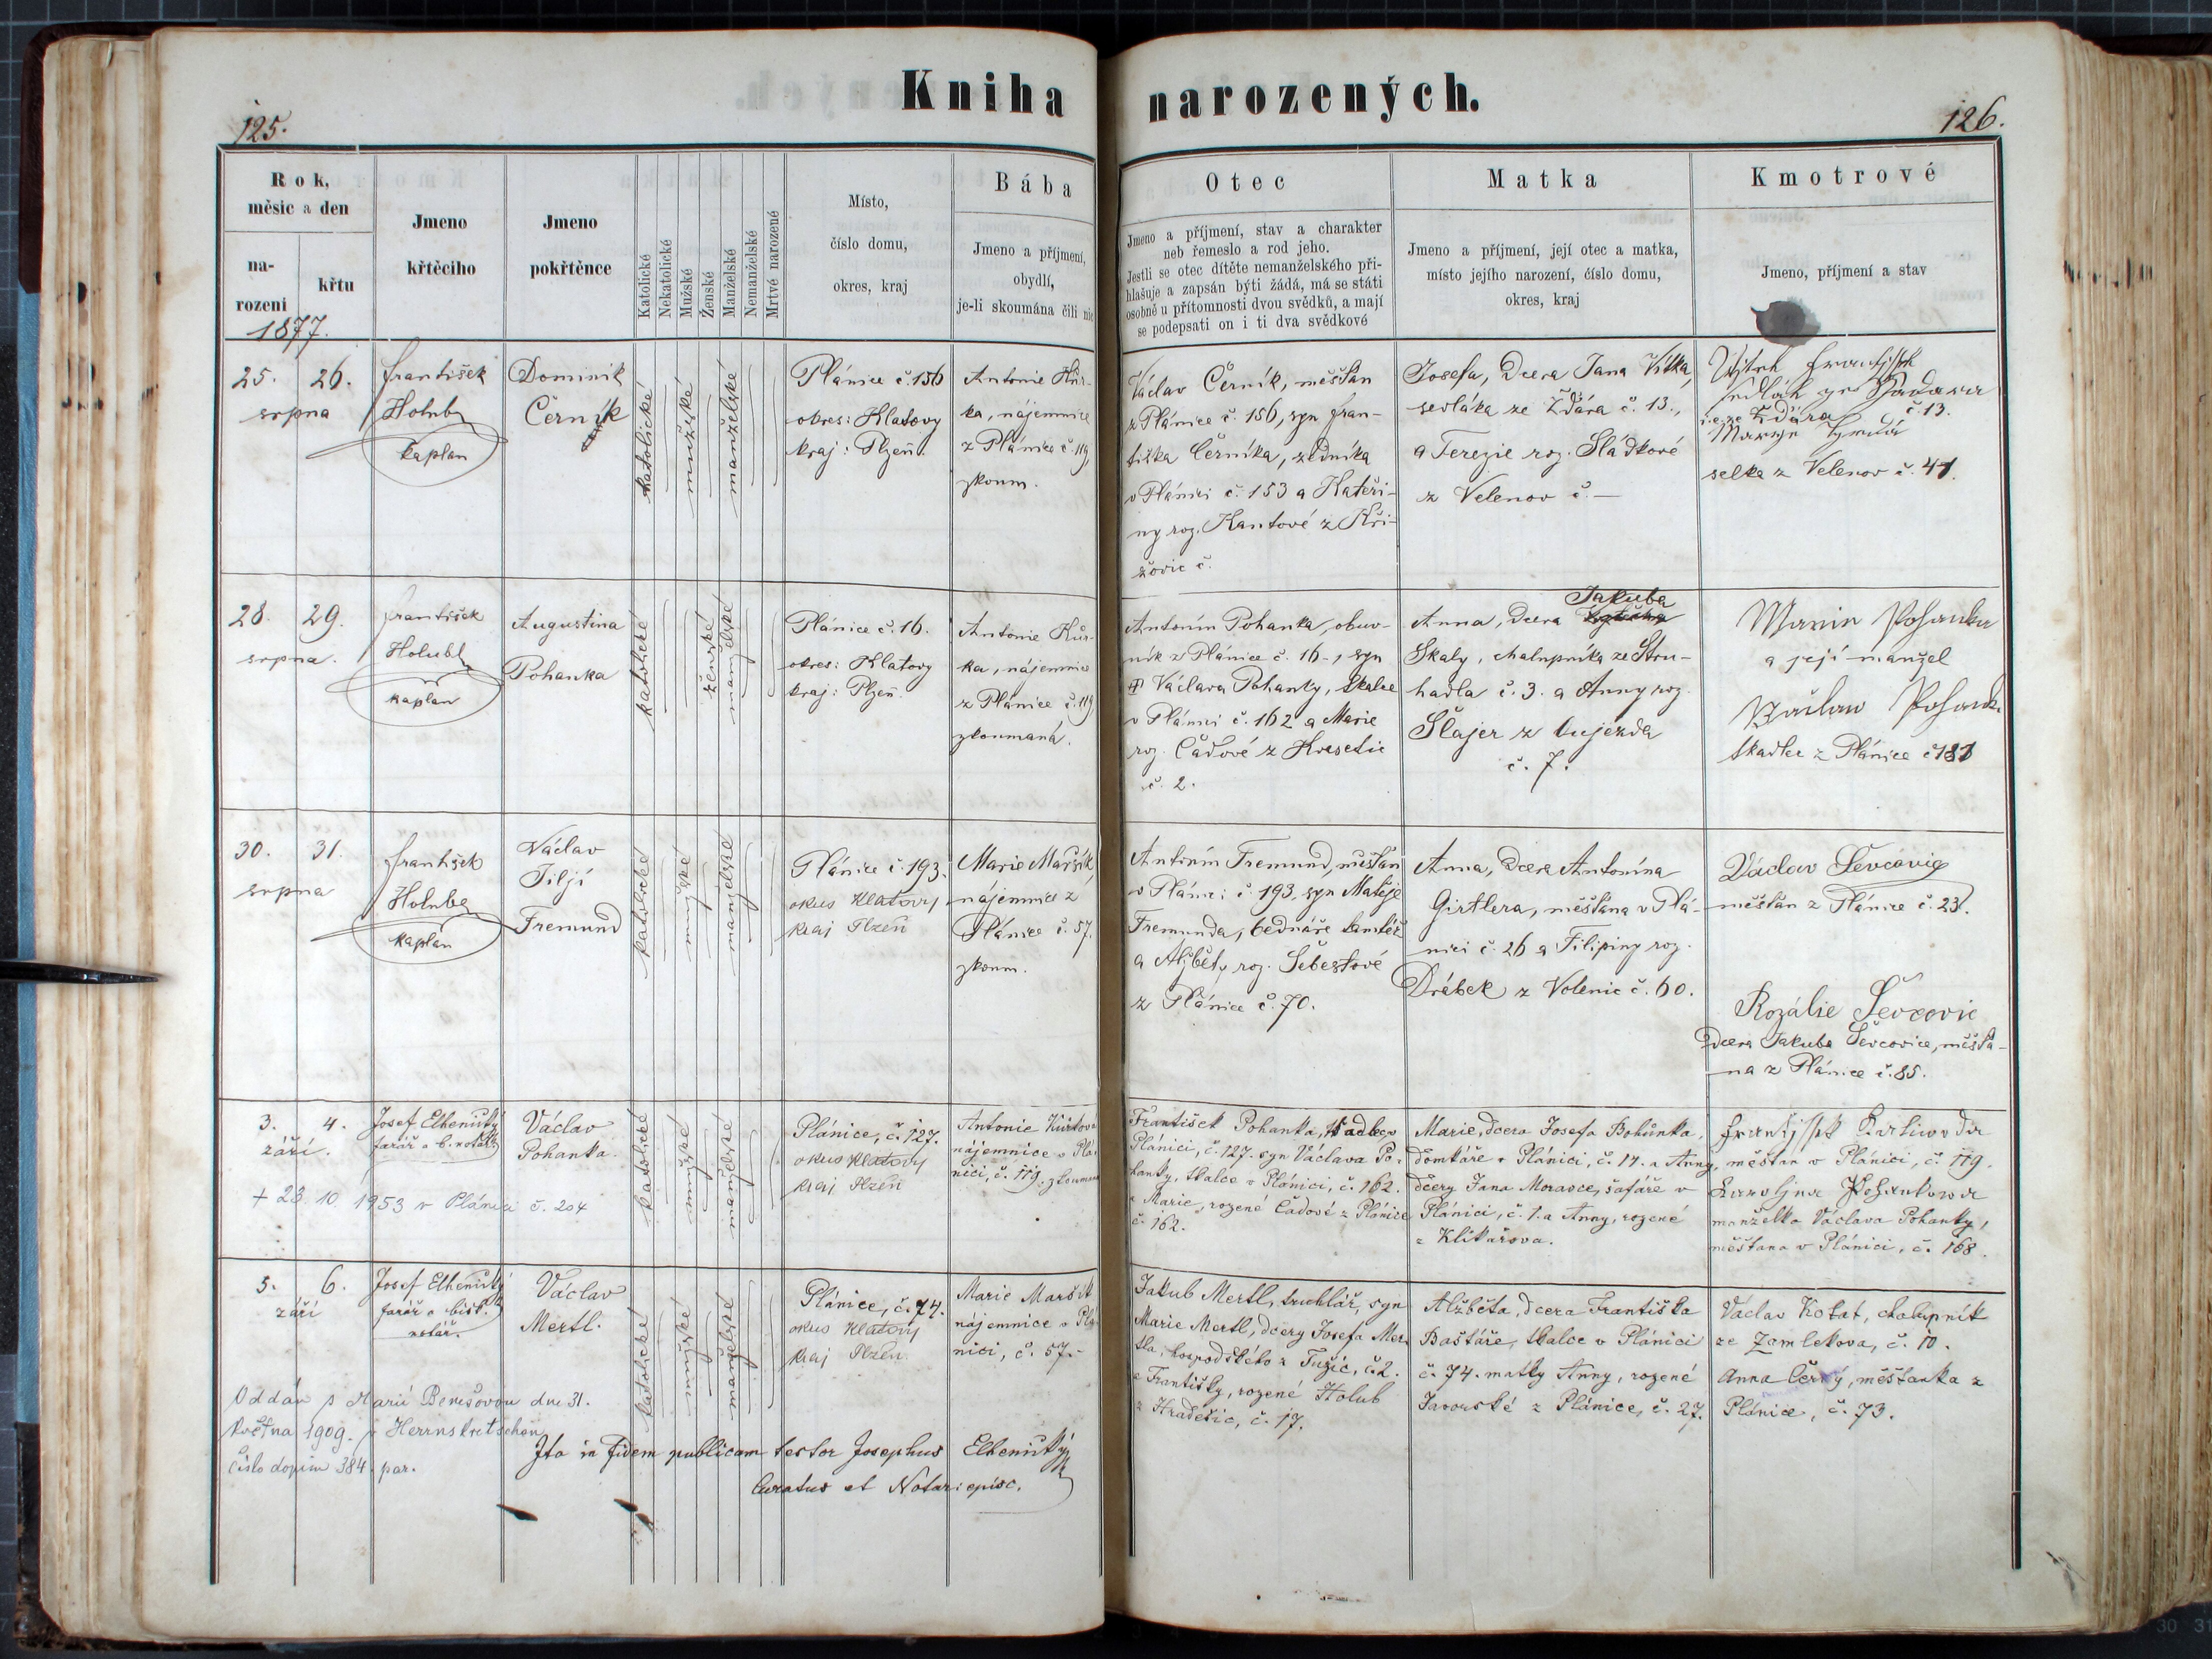 Kniha narozených.
125.
126.
Rok,
měsic a den
na-
rozeni
křtu
1877.
Jmeno
křtěcího
Jmeno
pokřtěnce
Katolické
Nekatolické
Mužské
Ženské
Manželské
Nemanželské
Mrtvé narozené
Místo,
číslo domu,
okres, kraj
Bába
Jmeno a příjmení,
obydlí,
je-li skoumána čili nic
Otec
Jmeno a příjmení, stav a charakter
neb řemeslo a rod jeho.
Jestli se otec dítěte nemanželského při-
hlašuje a zapsán býti žádá, má se státi
osobně u přítomnosti dvou svědků, a mají
se podepsati on i ti dva svědkové
Matka
Jmeno a příjmení, její otec a matka,
místo jejího narození, číslo domu,
okres, kraj
Kmotrové
Jmeno, příjmení a stav
25. 26.
srpna
František
Holub
kaplan
Dominik
Černík
katolické
mužské
manželské
Plánice č. 156
okres: Klatovy
kraj: Plzeň.
Antonie Kůr-
ka, nájemnice
z Plánice č. 119,
zkoum.
Václav Černík, měšťan
z Plánice č. 156, syn Fran-
tiška Černíka, zedníka
v Plánici č. 153 a Kateři-
ny roz. Kantové z Kři-
žovic č.
Josefa, dcera Jana Vítka,
sedláka ze Žďára č. 13.,
a Terezie roz. Sládkové
z Velenov č. —
František
ze Žďára č. 13.
selka z Velenov č. 41.
28. 29.
srpna.
František
Holub
kaplan
Augustina
Pohanka
katolické
ženské
manželské
Plánice č. 16.
okres: Klatovy
kraj: Plzeň.
Antonie Kůr-
ka, nájemnice
z Plánice č. 119
zkoumaná.
Antonín Pohanka, obuv-
ník z Plánice č. 16-, syn
Václava Pohanky, tkalce
v Plánici č. 162 a Marie
roz. Čadové z Kvasetic
č. 2.
Jakuba
Anna, dcera
Skaly, chalupníka ze Stru-
hadla č. 3. a Anny roz.
Šlajer z Aujezda
č. 7.
Marie Pohanka
a její manžel
Václav Pohanka
tkadlec z Plánice č. 181
30. 31.
srpna
František
Holub
kaplan
Václav
Jiljí
Fremund
katolické
mužské
manželské
Plánice č. 193.
okres Klatovy
kraj Plzeň
Marie Maršík,
nájemnice z
Plánice č. 57.
zkoum.
Antonín Fremund, měšťan
v Plánici č. 193, syn Matěje
Fremunda, bednáře tamtéž
a Alžběty roz. Šebestové
z Plánice č. 70.
Anna, dcera Antonína
Girtlera, měšťana v Plá-
nici č. 26 a Filipiny roz.
Drábek z Volenic č. 60.
Václav Ševcovic
měšťan z Plánice č. 23.
Rozálie Ševcovic
dcera Jakuba Ševcovice, měšťa-
na z Plánice č. 85.
3. 4.
září.
Josef Elhenický
farář a b. notář
Václav
Pohanka
katolické
mužské
manželské
Plánice, č. 127.
okres Klatovy
kraj Plzeň
Antonie Kůrková
nájemnice v Plá-
nici, č. 119. zkoumaná
+ 23. 10. 1953 v Plánici č. 204
František Pohanka, tkadlec v
Plánici, č. 127. syn Václava Po-
hanky, tkalce v Plánici, č. 162.
a Marie, rozené Čadové z Plánice
č. 162.
Marie, dcera Josefa Bohůnka,
domkáře v Plánici, č. 14. a Anny,
dcery Jana Moravce, šafáře v
Plánici, č. 1. a Anny, rozené
z Klikařova.
František
měšťan v Plánici, č. 119.
Karoljna Pohankowa
manželka Václava Pohanky,
měšťana v Plánici, č. 168.
5. 6.
září
Josef Elhenický
farář a bisk.
notář.
Václav
Mertl.
katolické
mužské
manželské
Plánice, č. 74.
okres Klatovy
kraj Plzeň
Marie Maršík
nájemnice v Plá-
nici, č. 57.-
Jakub Mertl, truhlář, syn
Marie Mertl, dcery Josefa Mer-
tla, hospodského z Tužic, č. 2.
a Františky, rozené Holub
z Hradešic, č. 17.
Alžběta, dcera Františka
Baštáře, tkalce v Plánici
č. 74. matky Anny, rozené
Javorské z Plánice, č. 27.
Václav Kotat, chalupník
ze Zamlekova, č. 10.
Anna Černý, měšťanka z
Plánice, č. 73.
Oddán s Marií Benešovou dne 31.
května 1909. v Herrnskretschen
číslo dopisu 384 par.
Ita in fidem publicam testor Josephus Elhenický
Curatus et Notar: episc.